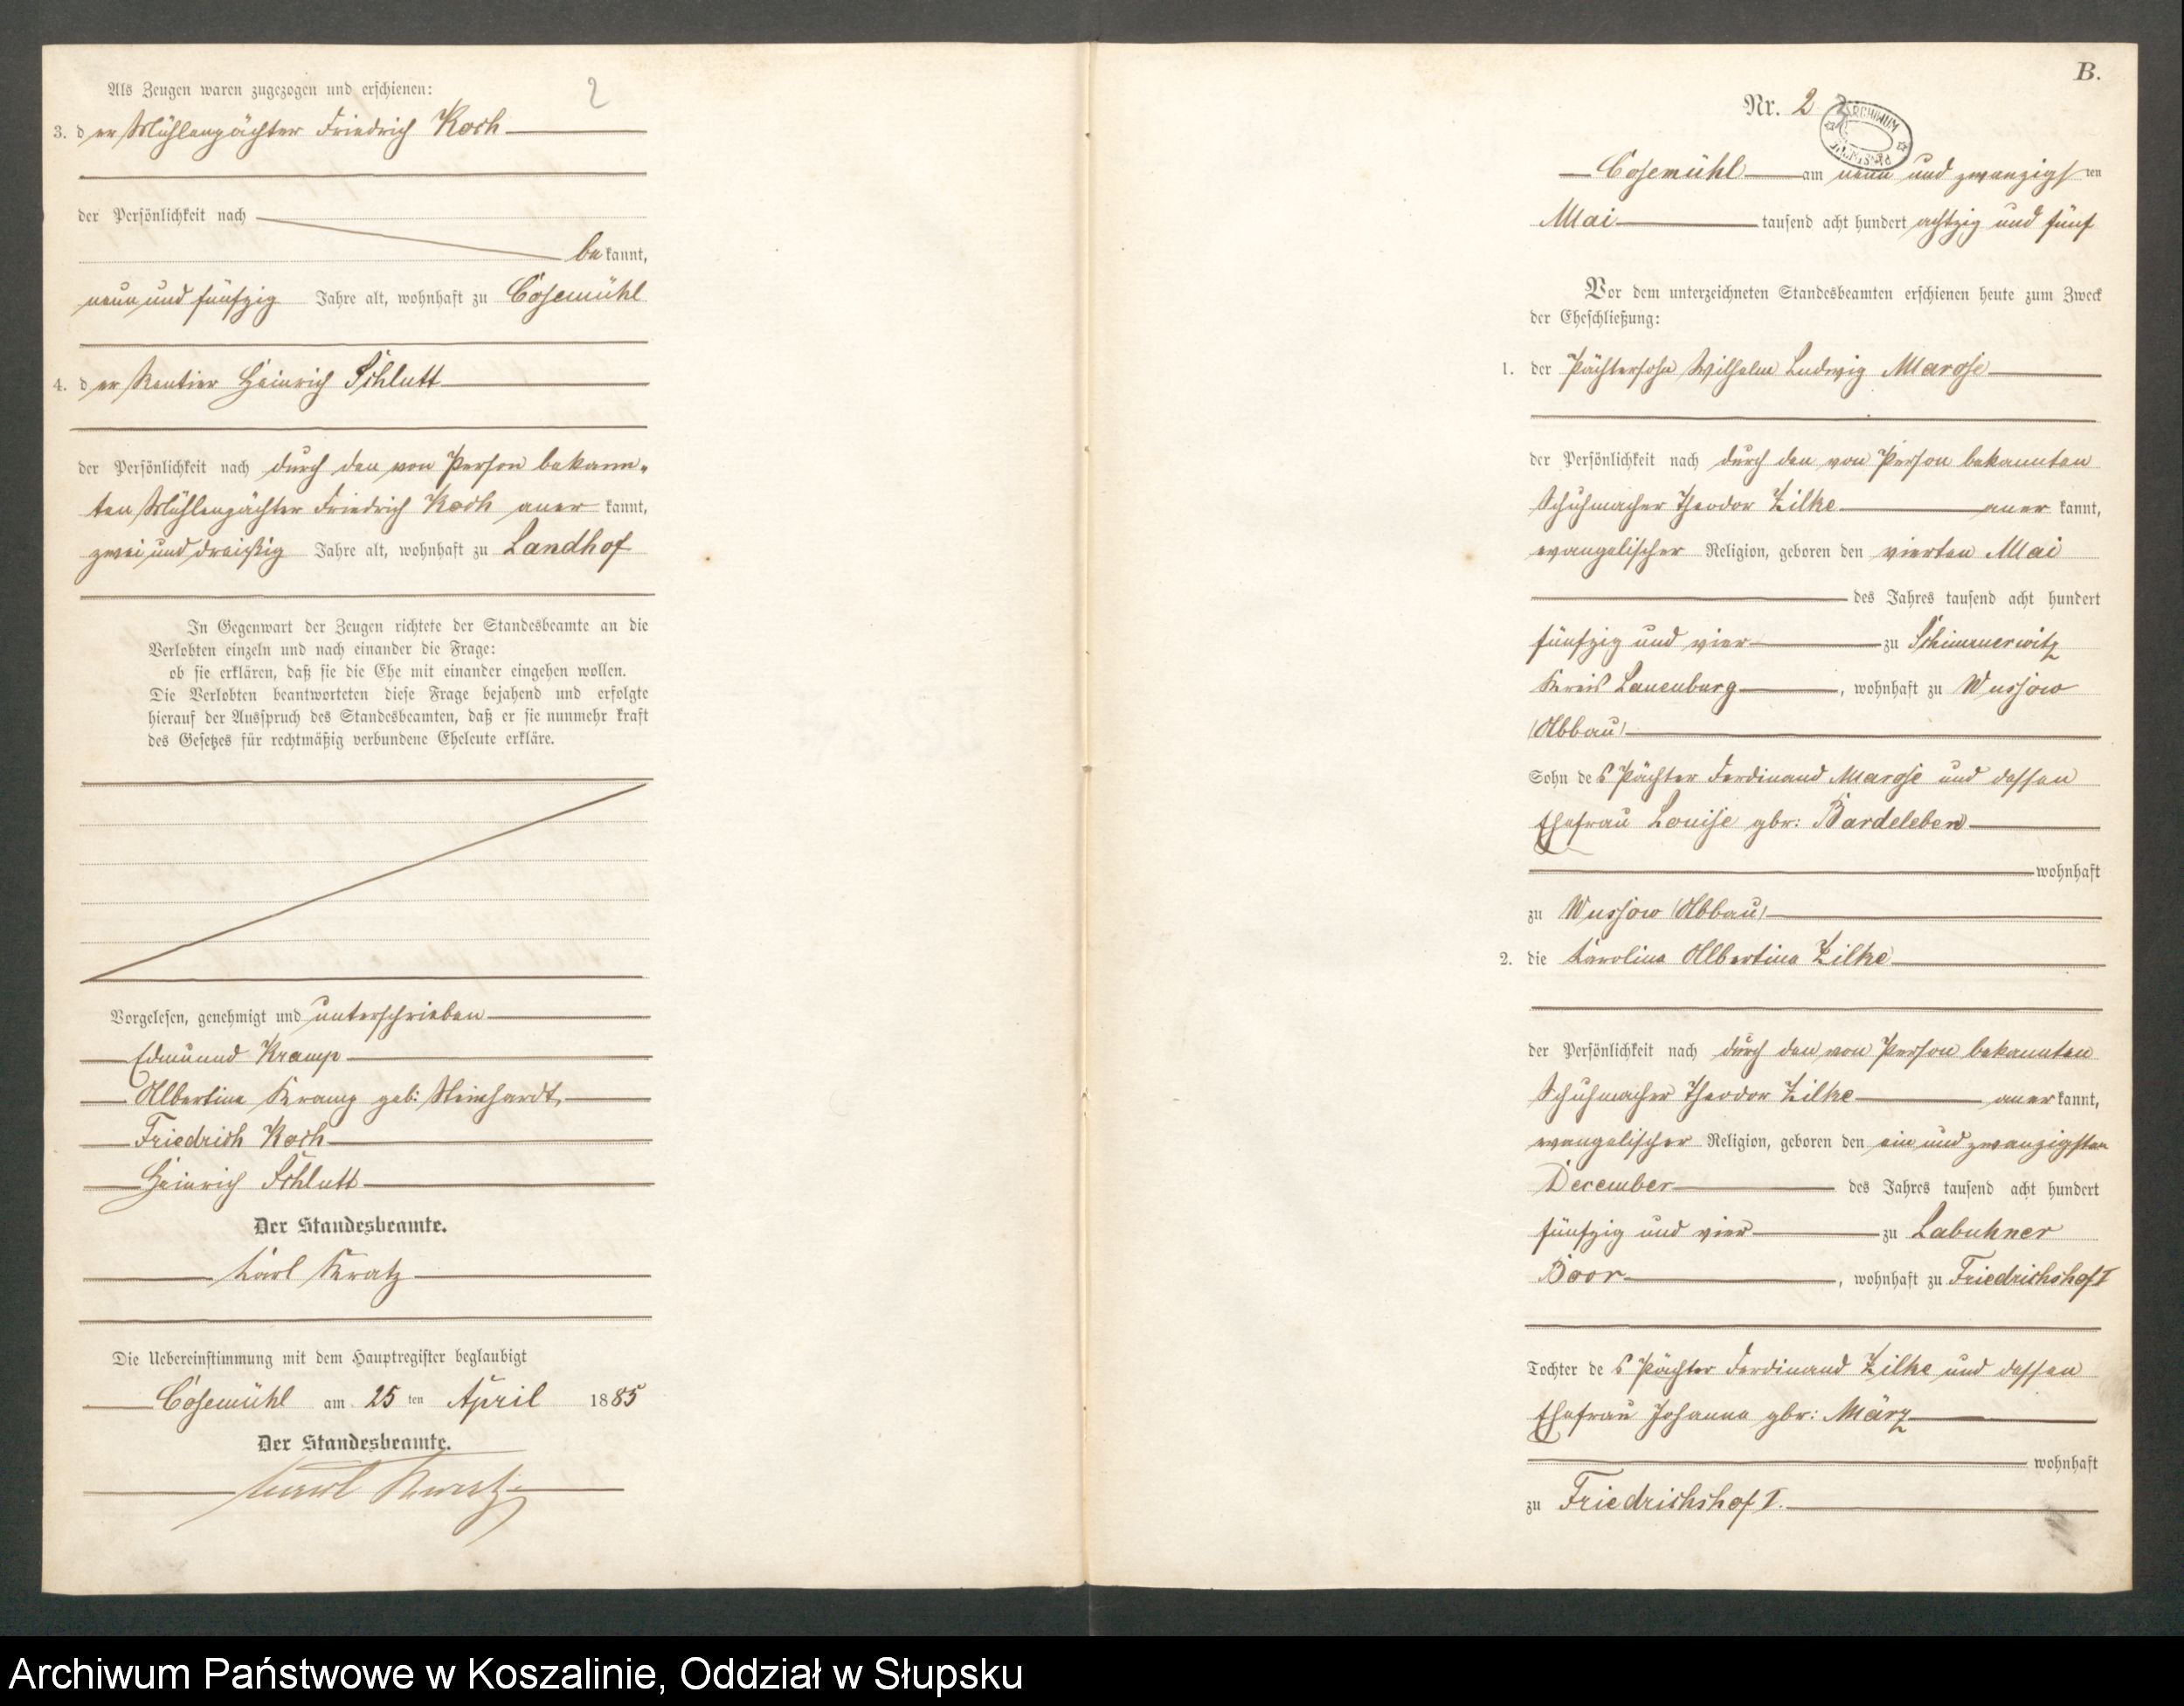 Als Zeugen waren zugezogen und erschienen:
2
3. der Mühlenpächter Friedrich Koch
der Persönlichkeit nach
bekannt,
neun und fünfzig Jahre alt, wohnhaft zu Cosemühl
4. der Rentier Heinrich Schlutt
der Persönlichkeit nach durch den von Person bekann-
ten Mühlenpächter Friedrich Koch anerkannt,
zwei und dreißig Jahre alt, wohnhaft zu Landhof
In Gegenwart der Zeugen richtete der Standesbeamte an die
Verlobten einzeln und nach einander die Frage:
ob sie erklären, daß sie die Ehe mit einander eingehen wollen.
Die Verlobten beantworteten diese Frage bejahend und erfolgte
hierauf der Ausspruch des Standesbeamten, daß er sie nunmehr kraft
des Gesetzes für rechtmäßig verbundene Eheleute erkläre.
Vorgelesen, genehmigt und unterschrieben
Edmund Kramp
Albertine Kramp geb: Steinhardt,
Friedrich Koch
Heinrich Schlutt
Der Standesbeamte.
Karl Kratz
Die Uebereinstimmung mit dem Hauptregister beglaubigt
Cosemühl am 25 ten April 1885
Der Standesbeamte.
Karl Kratz
B.
Nr. 2
ARCHIWUM
Cosemühl am neun und zwanzigsten
Mai tausend acht hundert achtzig und fünf
Vor dem unterzeichneten Standesbeamten erschienen heute zum Zweck
der Eheschließung:
1. der Pächtersohn Wilhelm Ludwig Margse
der Persönlichkeit nach durch den von Person bekannten
Schuhmacher Theodor Zilke anerkannt,
evangelischer Religion, geboren den vierten Mai
des Jahres tausend acht hundert
fünfzig und vier zu Schimmerwitz
Kreis Lauenburg, wohnhaft zu Wussow
(Abbau)
Sohn des Pächter Ferdinand Margse und dessen
Ehefrau Louise gbr: Bardeleben
wohnhaft
zu Wussow (Abbau)
2. die Karoline Albertine Zilke
der Persönlichkeit nach durch den von Person bekannten
Schuhmacher Theodor Zilke anerkannt,
evangelischer Religion, geboren den ein und zwanzigsten
December des Jahres tausend acht hundert
fünfzig und vier zu Labuhner
Boor, wohnhaft zu Friedrichshof I
Tochter des Pächter Ferdinand Zilke und dessen
Ehefrau Johanna gbr: März
wohnhaft
zu Friedrichshof I.
Archiwum Państwowe w Koszalinie, Oddział w Słupsku